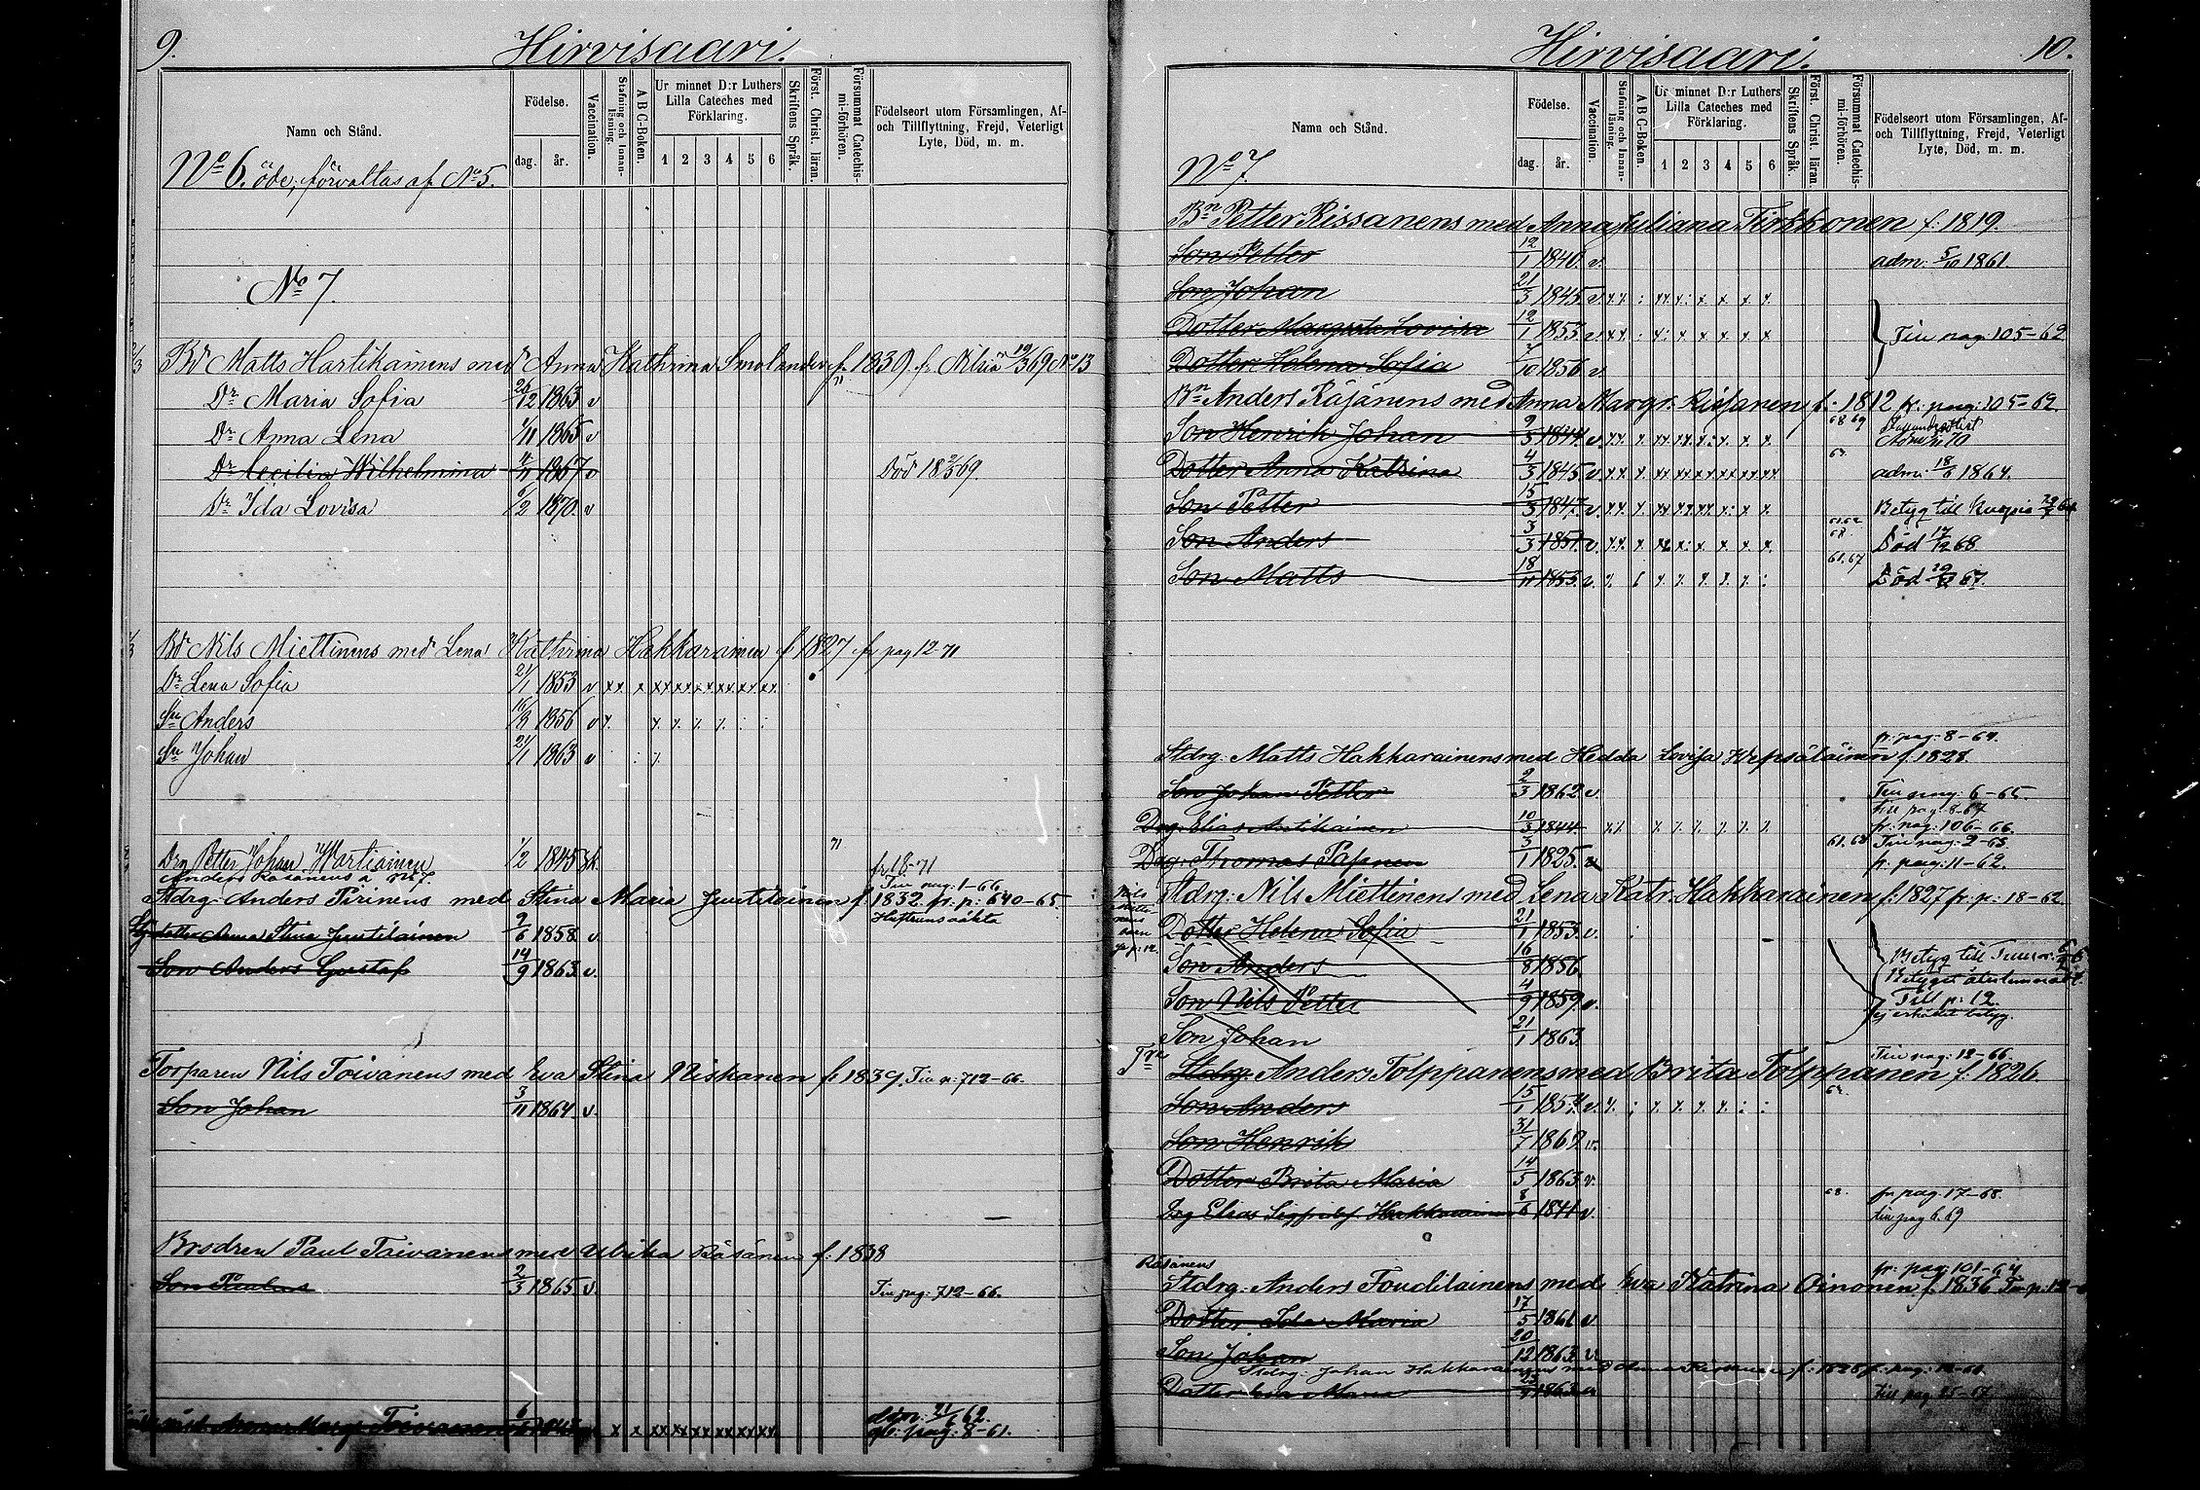 9.
Hirvisaari.
Namn och Stånd.
Födelse.
dag.
år.
Vaccination.
Stafning och Innanläsning.
A B C-Boken.
Ur minnet D:r Luthers Lilla Cateches med Förklaring.
1 2 3 4 5 6
Skriftens Språk.
Först. Christ. läran.
Försummat Catechismi-förhören.
Födelseort utom Församlingen, Af- och Tillflyttning, Frejd, Veterligt Lyte, Död, m. m.
No 6. öde, förvaltas af No 5.
No 7.
Bd Matts Hartikainens med Anna Kathrina Smolander f. 1839. fr Nilsiä 19/3 69 No 13
Dr Maria Sofia 26/12 1863 v
Dr Anna Lena 1/11 1865 v
Dr Cecilia Wilhelmina 1867 v Död 18 69.
Dr Ida Lovisa 1/2 1870 v
Bd Nils Miettinens med Lena Kathrina Hakkarainen f 1827 fr pag 12 71
Dr Lena Sofia 21/1 1853 v
Sn Anders 16/8 1856 v
Sn Johan 21/1 1863 v
Drg Petter Johan 1/2 1845 fr 18-71
Anders Räsänens
Till pag. 1-66
Stdrg: Anders Pirinens med Stina Maria Juutilainen f 1832. fr. p: 640-65.
dotter Anna Stina Juutilainen 2/6 1858 v.
Son Anders Gustaf 14/9 1863 v.
Torparen Nils Toivanens med Eva Stina Niskanen f. 1839. Till p: 712-66.
Son Johan 3/11 1864 v.
Brodren Paul Taivanens med Ulrika Räsänen f: 1838
Son Paulus 2/3 1865 v. Till pag: 712-66.
Anna Margr. Toivanen 6 62.
pag: 8-61.
Hirvisaari.
10.
Namn och Stånd.
Födelse.
dag.
år.
Vaccination.
Stafning och Innanläsning.
A B C-Boken.
Ur minnet D:r Luthers Lilla Cateches med Förklaring.
1 2 3 4 5 6
Skriftens Språk.
Först. Christ. läran.
Försummat Catechismi-förhören.
Födelseort utom Församlingen, Af- och Tillflyttning, Frejd, Veterligt Lyte, Död, m. m.
No 7.
Bn Petter Rissanens med Anna Juliana Tirkkonen f. 1819.
Son Petter 12/1 1840. v. adm. 5/10 1861.
Son Johan 21/3 1845 v.
Dotter Margreta Lovisa 12/1 1853 v. Till pag. 105-62
Dotter Helena Sofia 10 1856 v.
Bn Anders Räsänens med Anna Margr. Rissanen f. 1812 fr. pag: 105-62
Son Henrik Johan 9/3 1844 v. 68 69
Dotter Anna Katrina 4/3 1845 v. adm. 18 1864.
Son Petter 15/3 1847. v. Betyg till Kuopio
Son Anders 3/3 1851. v. Död 17/12 68
Son Matts 18/11 1853 v. 61.67 Död 67.
fr. pag: 8-64.
Stdrg. Matts Hakkarainens med Hedda Lovisa Hepsäläinen f. 1828.
Son Johan Petter 2/3 1862 v. Till pag: 6-65.
Till pag 8-67
Drg. Elias Antikainen 10/3 1844 fr. pag: 106-66.
Drg. Thomas 3/1 1825. Till pag: 2-63
fr. pag: 11-62.
Stdrg: Nils Miettinens med Lena Katr. Hakkarainen f. 1827 fr. p: 18-62
Dotter Helena Sofia 21/1 1853. v.
Son Anders 16/8 1856
Son Nils Petter 4/9 1859. v. Till p: 12.
Son Johan 21/1 1863 ej erhållit betyg.
Till pag: 12-66.
Stdrg. Anders Tolppanens med Brita Tolppanen f. 1826.
Son Anders 1854 v.
Son Henrik 31/7 1862 v.
Dotter Brita Maria 14/5 1863 v.
Drg Elias Hakkarainen 8/6 1844 v. 68. fr pag. 17-68.
till pag 6. 69
Räsänens fr: pag: 101-64
Stdrg: Anders Toudilainens med Eva Katrina Oinonen f. 1836
Dotter Ida Maria 17/5 1861 v.
Son Johan 20/12 1863 v.
Stdrg. Johan Hakkarainens med
Dotter Eva Maria 1863 v. till pag 25-67